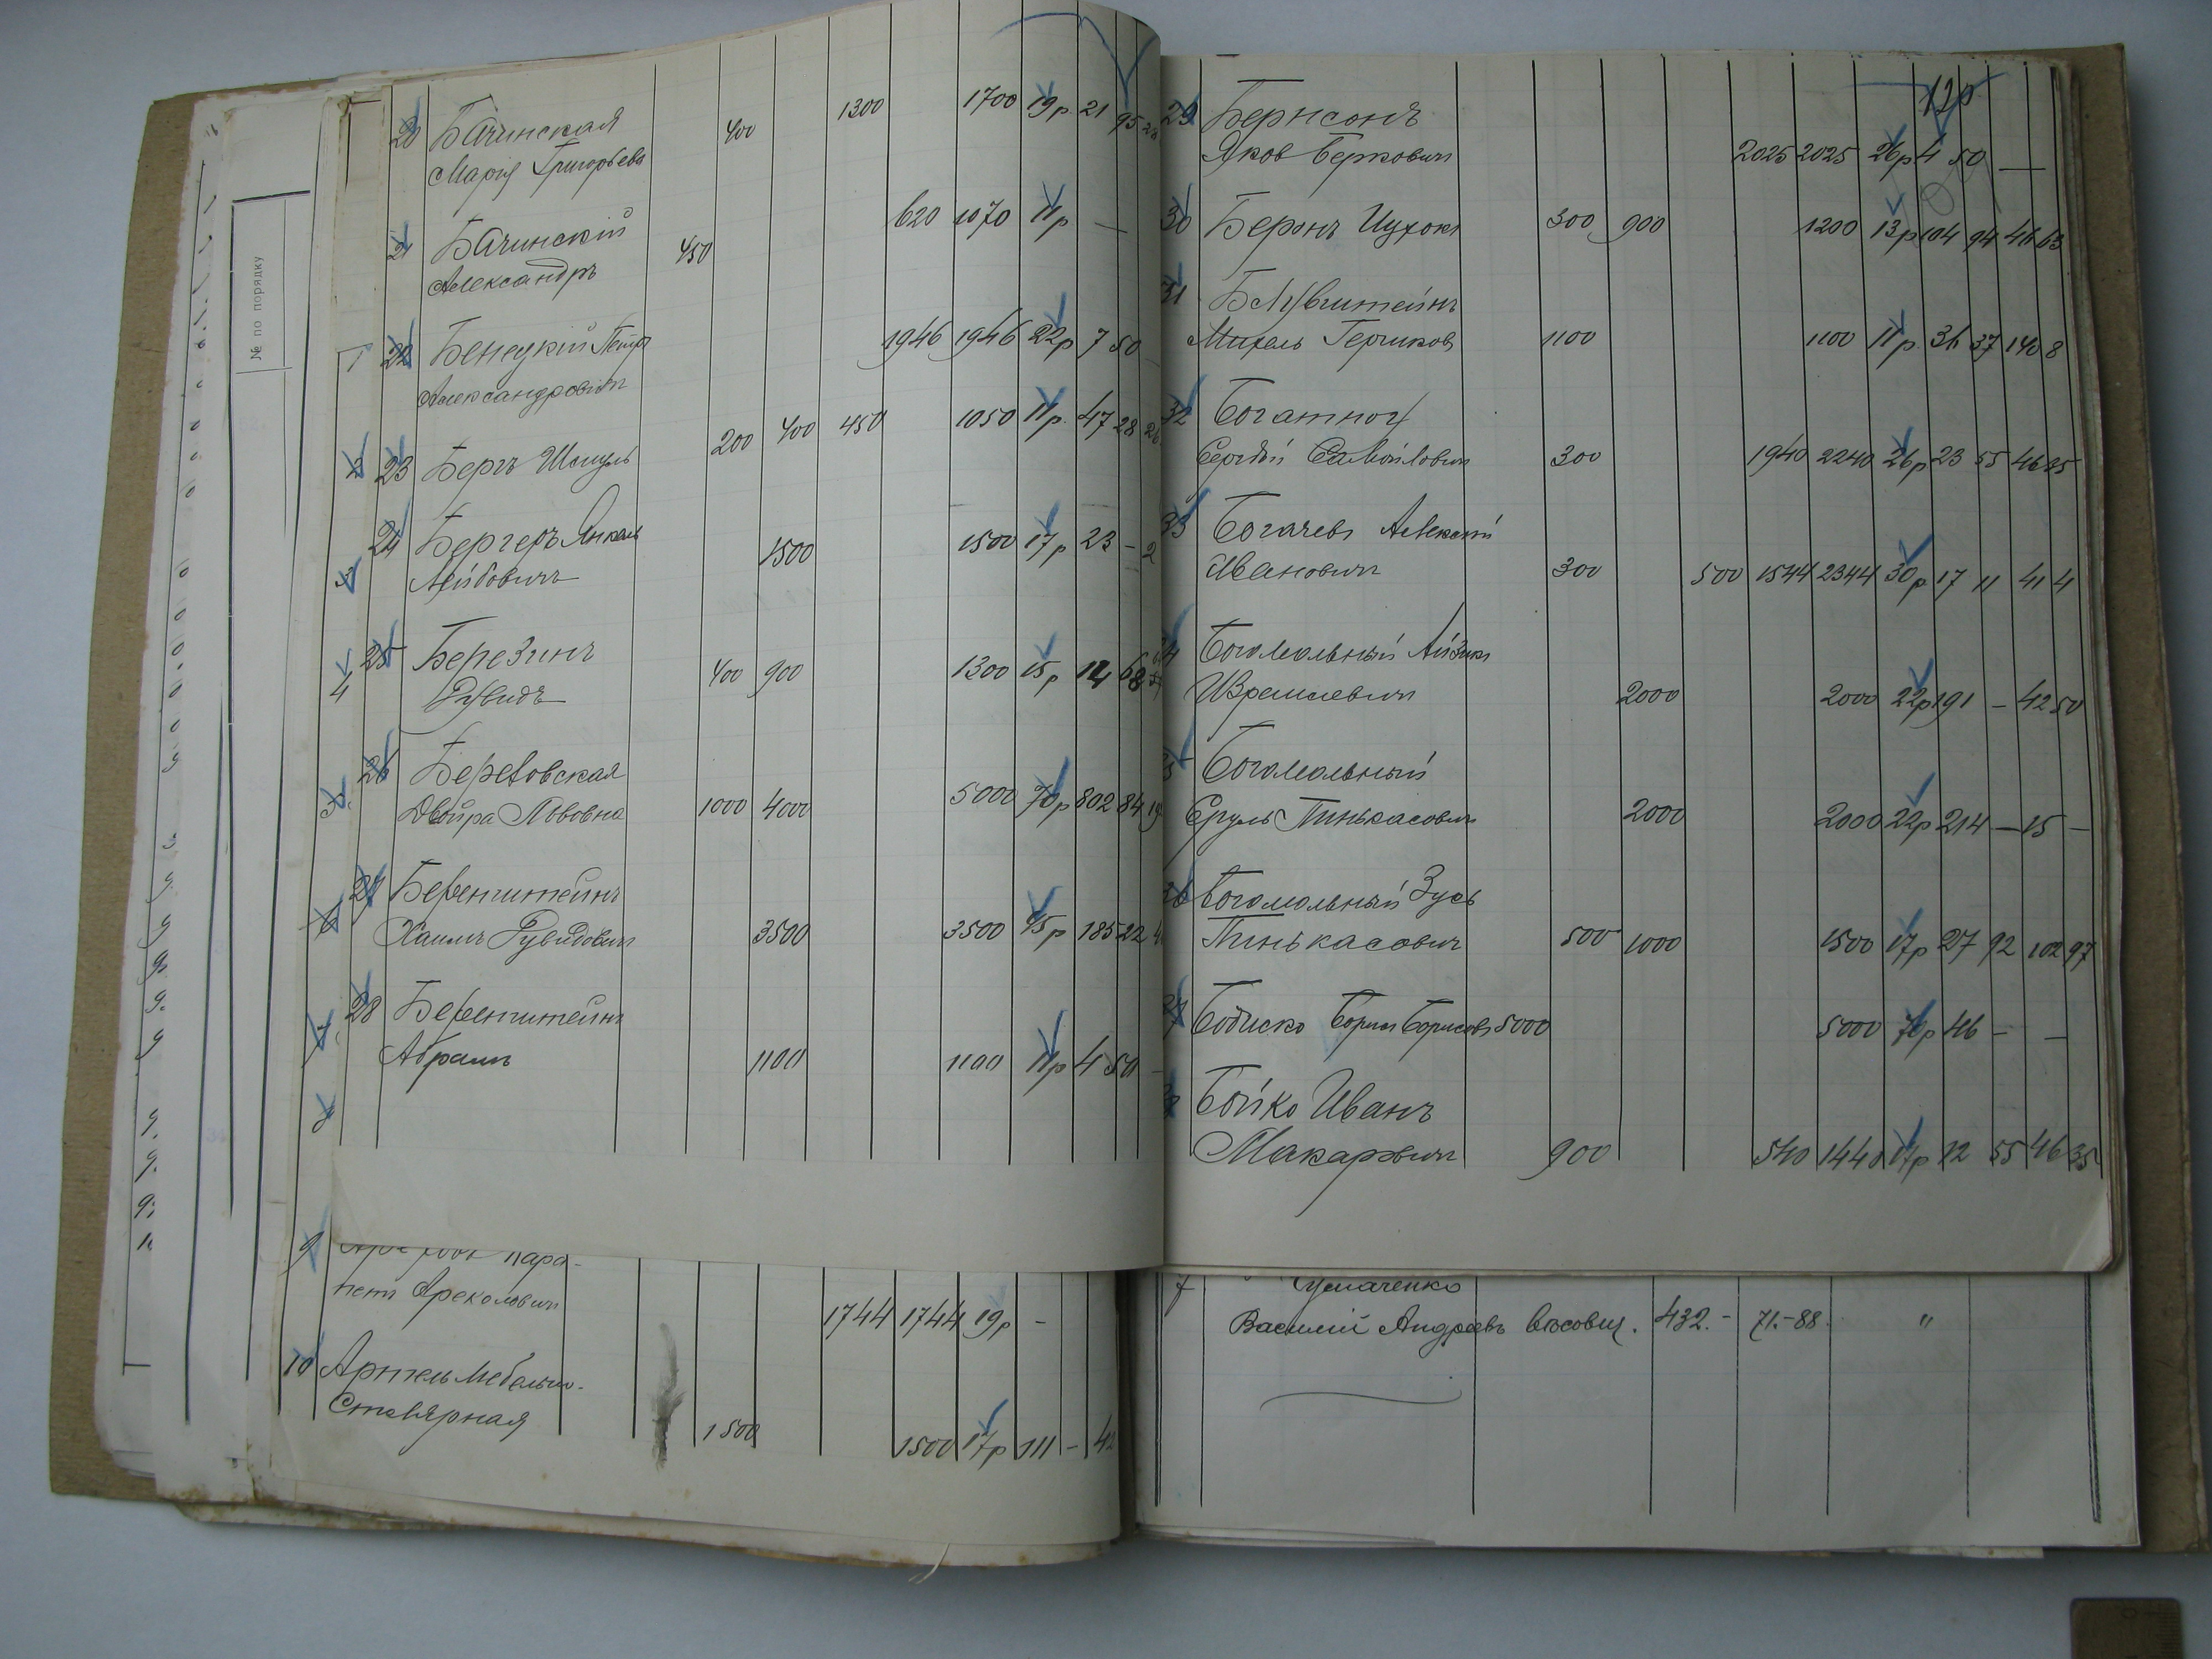 № по порядку
20 Бачинская 400 1300 1700 19р 21 95
Марія Григорьева
21 Бачинскій 450 620 1070 11р —
Александръ
22 Бенецкій Петръ 1946 1946 22р 7 50
Александровичъ
23 Бергъ Шмуль 200 400 450 1050 11р 47 28
24 Бергеръ Янкель 1500 1500 17р 23 —
Лейбовичъ
25 Березинъ 400 900 1300 15р 14 68
Рувидъ
26 Береговская
Двойра Львовна 1000 4000 5000 70р 802 84
27 Беренштейнъ
Хаимъ Рувидович 3500 3500 45р 185 22
28 Беренштейнъ
Абрамъ 1100 1100 11р 4 50
1
2
3
4
5
6
7
8
9
петъ
1744 1744 19р —
10 Артель Мебельно-
Столярная 1500 1500 17р 111 —
120
29 Бернсонъ
Яков Беркович 2025 2025 26р 4 50 —
30 Беронъ Ицхокъ 300 900 1200 13р 104 94 46 63
31 Блувштейнъ
Михель Гершков 1100 1100 11р 36 37 140 8
32 Богатноу
Сергѣй Самойлович 300 1940 2240 26р 23 55 46 25
33 Богачевъ Алексей
Иванович 300 500 1544 2344 30р 17 11 41 4
34 Богомольный Айзикъ
Израилевич 2000 2000 22р 191 — 42 50
35 Богомольный
Сруль Пинькасович 2000 2000 22р 214 — 15 —
36 Богомольный Зусь
Пинькасович 500 1000 1500 17р 27 92 102 97
37 Бодиско Борис Борисовъ 5000 5000 70р 46 — —
38 Бойко Иванъ
Макарович 900 540 1440 17р 12 55 46 35
7
Василий Андреевъ 432.- 71.-88. "